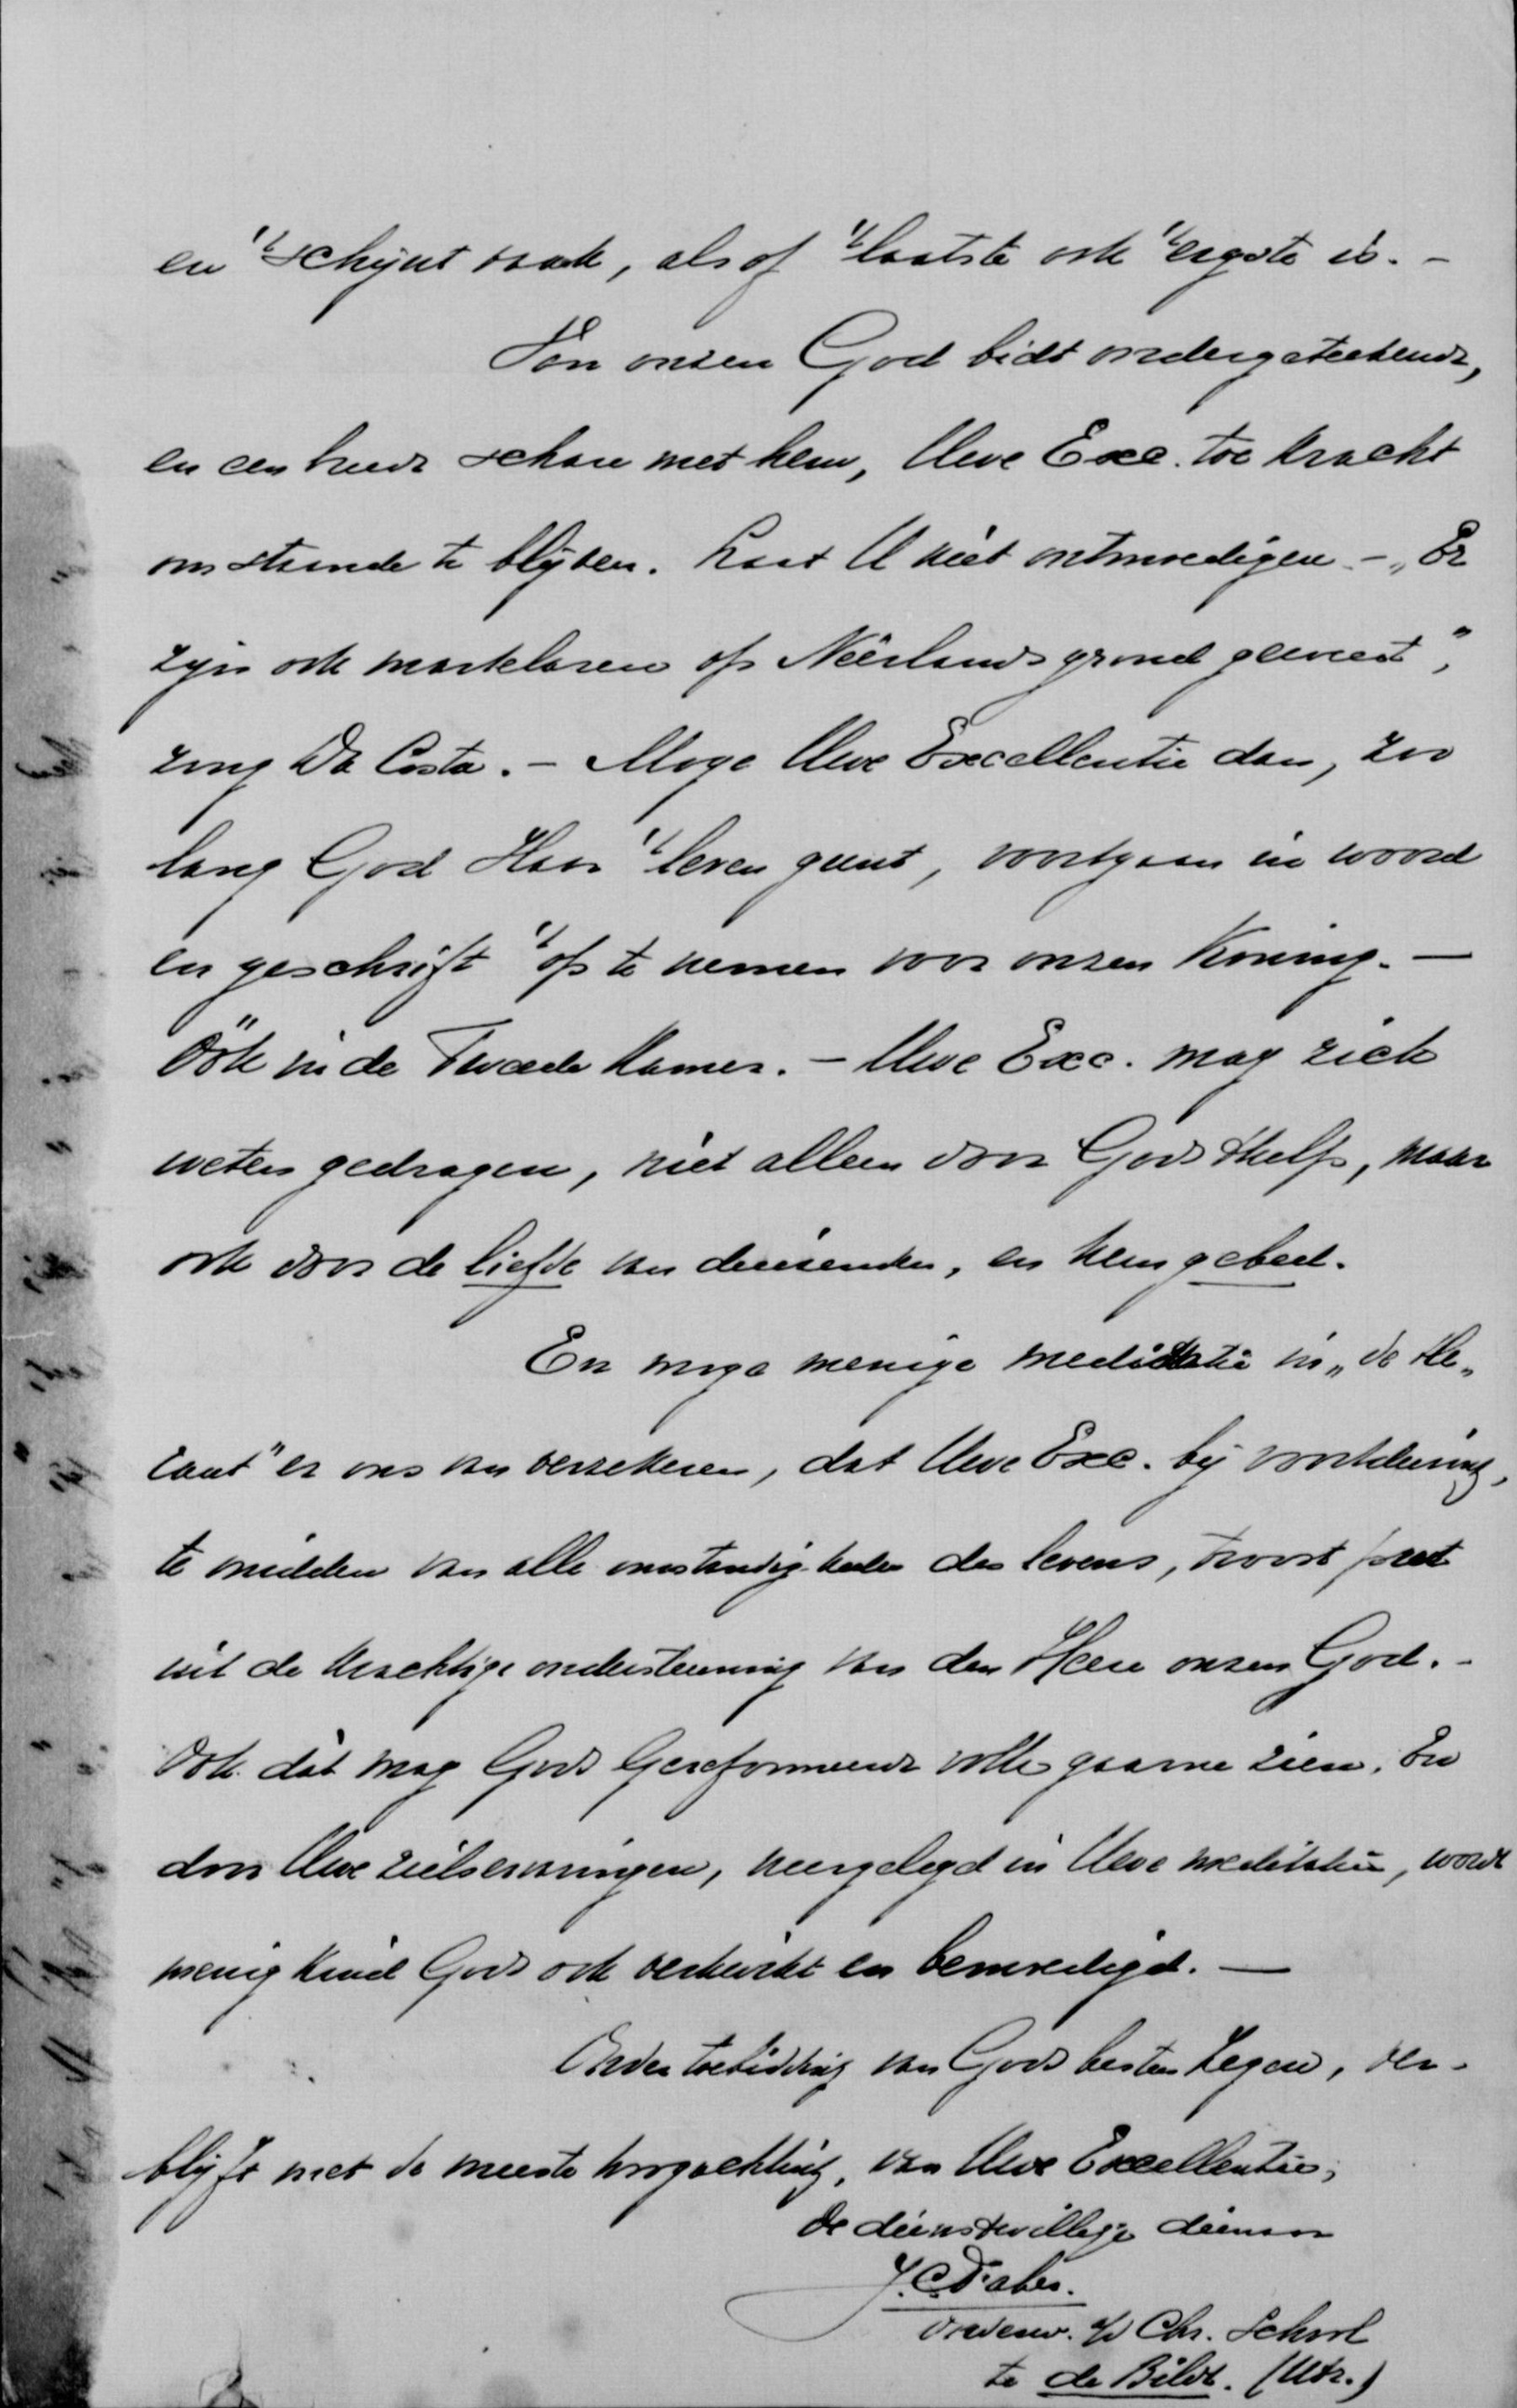 en 't schijnt vaak, alsof 't laatste ook 't ergste is. –
Van onzen God bidt ondergeteekende,
en een breede schare met hem, Uwe Exc. toe kracht
om staande te blijven. Laat U niet ontmoedigen. – „Er
zijn ook martelaren op Neêrlands grond geweest",
zong Da Costa. – Moge Uwe Excellentie dan, zoo
lang God Haar 't leven gunt, voortgaan in woord
en geschrift 't op te nemen voor onzen Koning. —
Óók in de Tweede Kamer. – Uwe Exc. mag zich
weten gedragen, niet alleen door Gods hulp, maar
ook door de liefde van duizenden, en hun gebed.
En moge menige meditatie in „de He„
raut" er ons van verzekeren, dat Uwe Exc. bij voortduring,
te midden van alle omstandigheden des levens, troost put
uit de krachtige ondersteuning van den Heere onzen God. –
Ook dàt mag Gods Gereformeerde volk gaarne zien. En
door Uwe zielservaringen, neergelegd in Uwe meditatiën, wordt
menig kind Gods ook verkwikt en bemoedigd. —
Onder toebidding van Gods besten Zegen, ver-
blijft met de meeste hoogachting, van Uwe Excellentie,
de dienstwillige dienaar
J. C. Faber.
onderw. a/d Chr. School
te de Bildt. (Utr.)